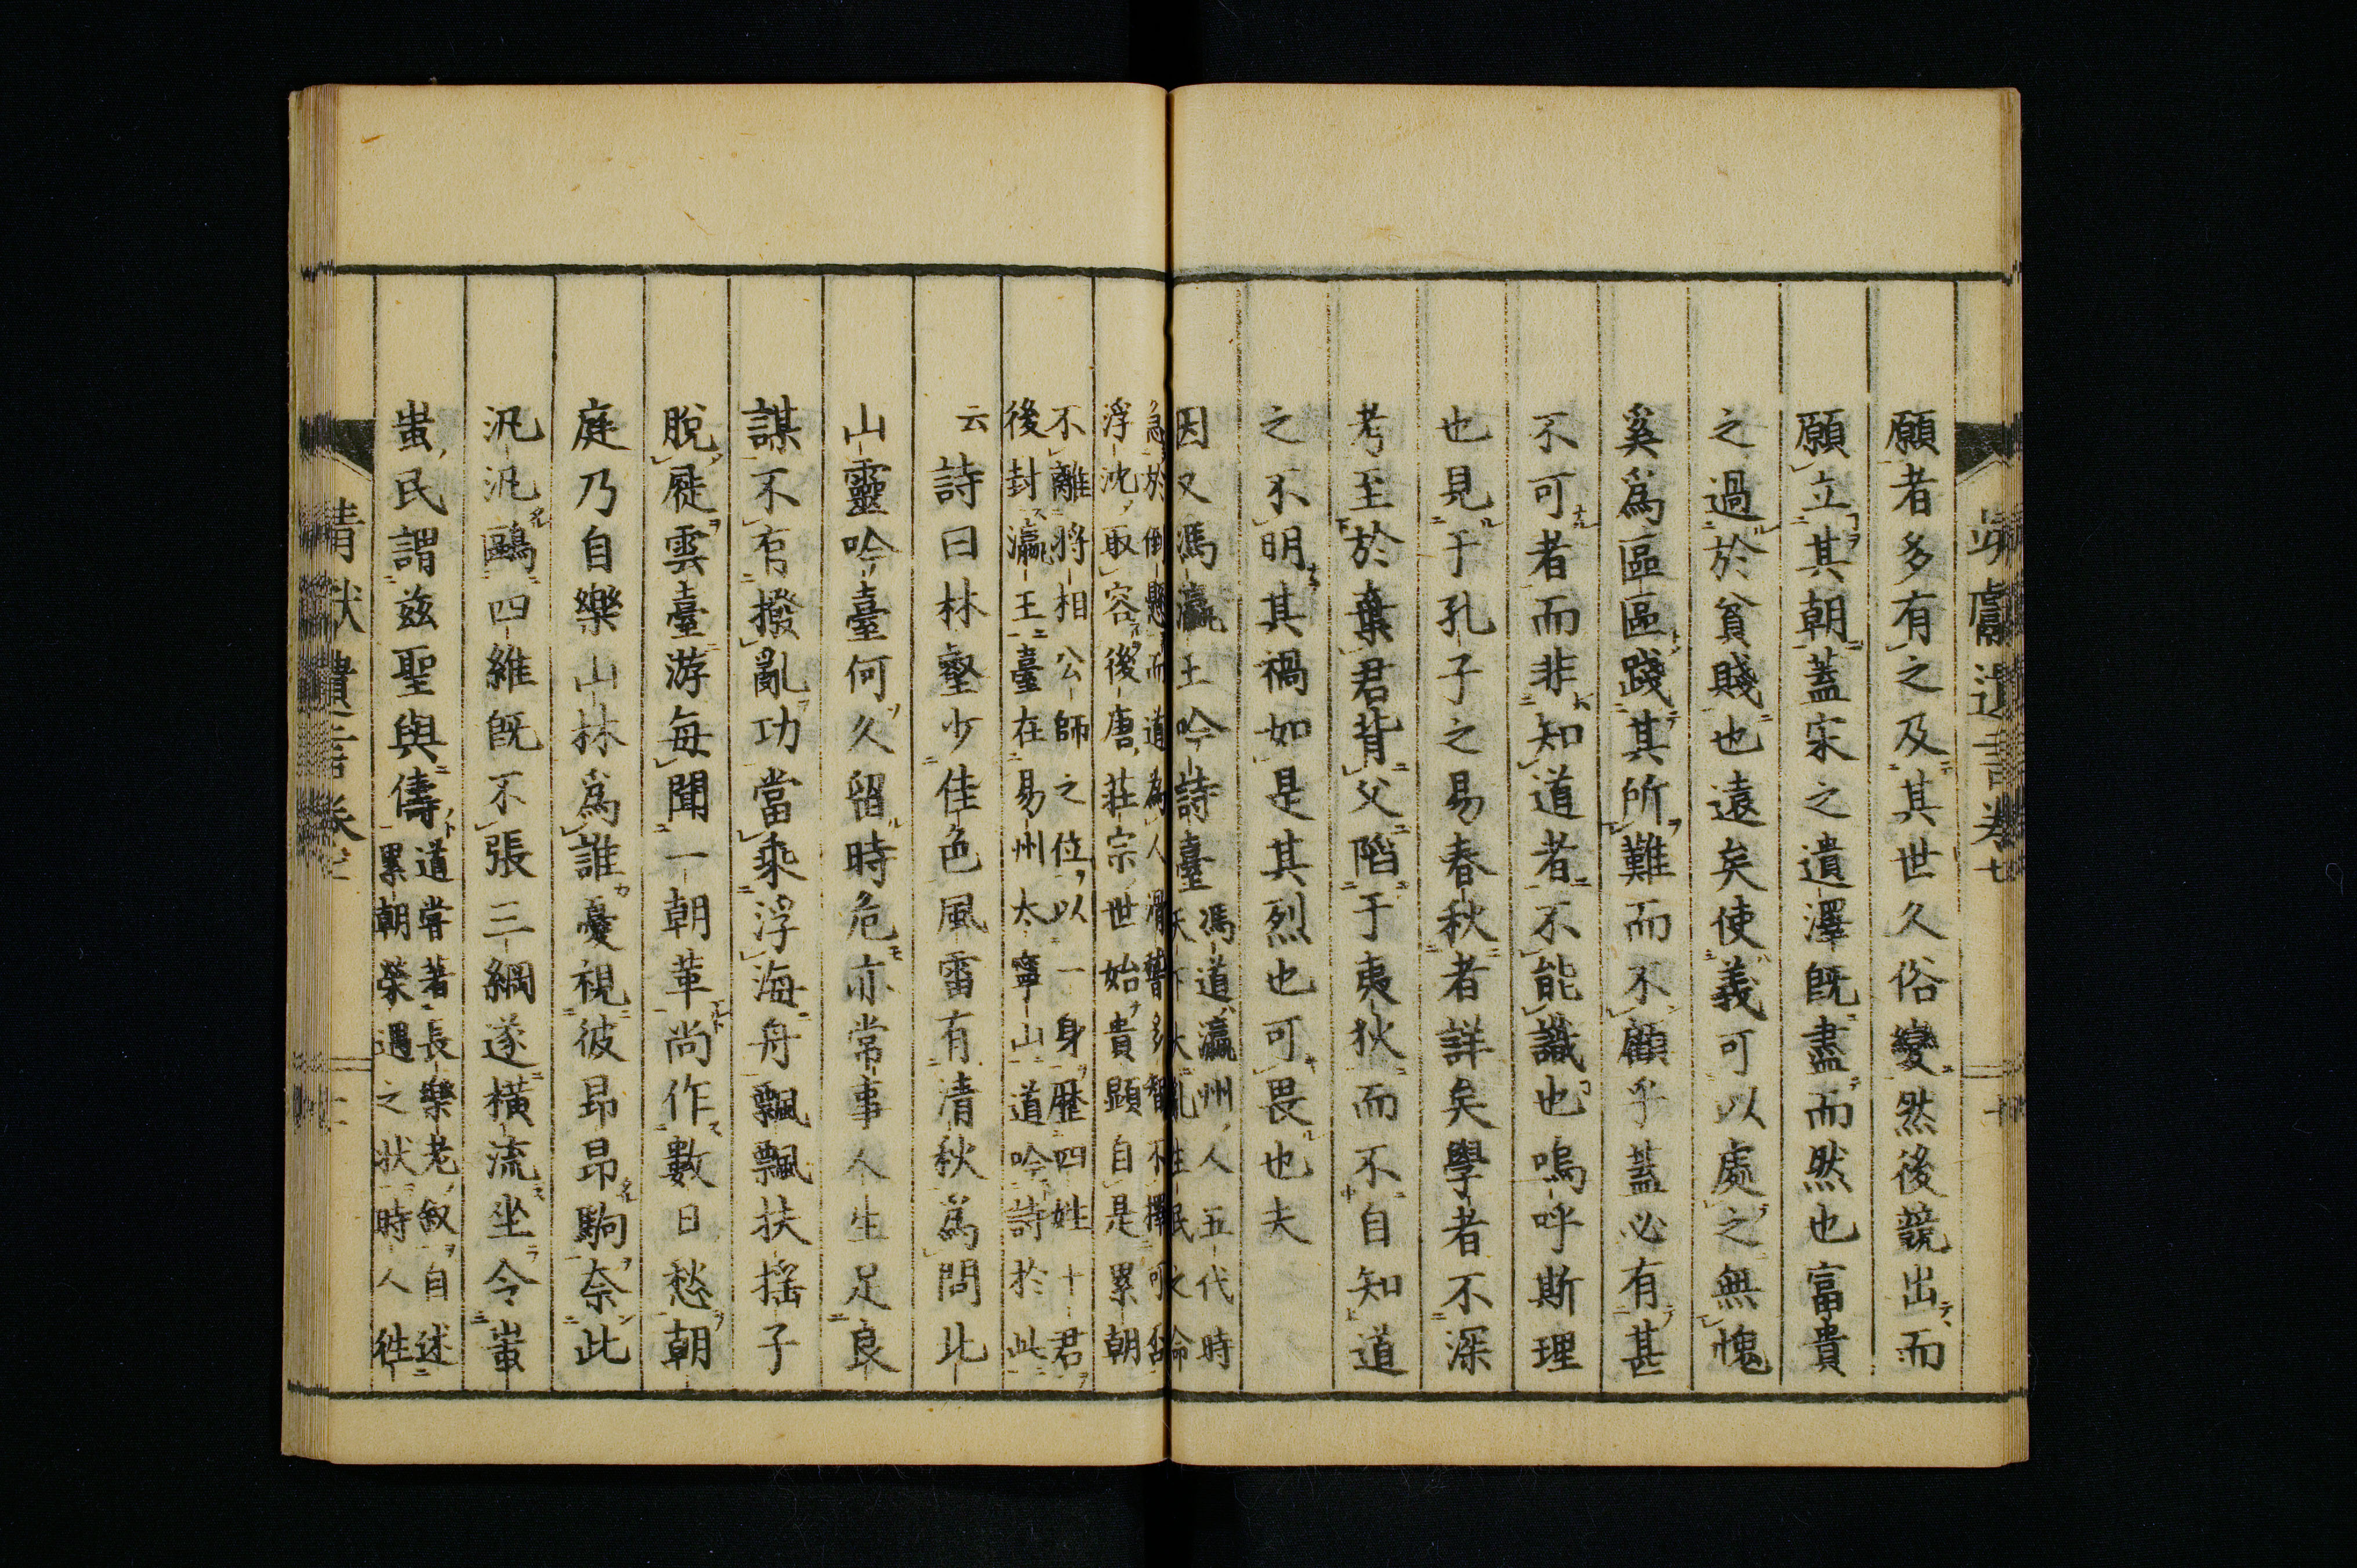 願者多有之及其世久俗變然後競出而
願立其朝蓋宋之遺澤既盡而然也富貴
之過於貧賤也遠矣使義可以處之無愧
奚為區區踐其所難而不顧乎蓋必有甚
不可者而非知道者不能識也嗚呼斯理
也見于孔子之易春秋者詳矣學者不深
考至於棄君背父陷于夷狄而不自知道
之不明其禍如是其烈也可畏也夫
因又馮瀛王吟詩臺
馮道瀛州人五代時
天下大亂生民之命
急於倒懸而道為人滑稽多智不擇可否
浮沈取容後唐莊宗世始貴顯自是累朝
不離將相公師之位以一身歷四姓十君
後封瀛王臺在易州太寧山道吟詩於此
云
詩曰林壑少佳色風雷有清秋為問北
山靈吟臺何久留時危亦常事人生足良
謀不有撥亂功當乘浮海舟飄飄扶搖子
脫屣雲臺游每聞一朝革尚作數日愁朝
庭乃自樂山林為誰憂視彼昂昂駒奈此
汎汎鷗四維既不張三綱遂橫流坐令蚩
蚩民謂茲聖與儔
道嘗著長樂老敘自述
累朝榮遇之狀時人徃